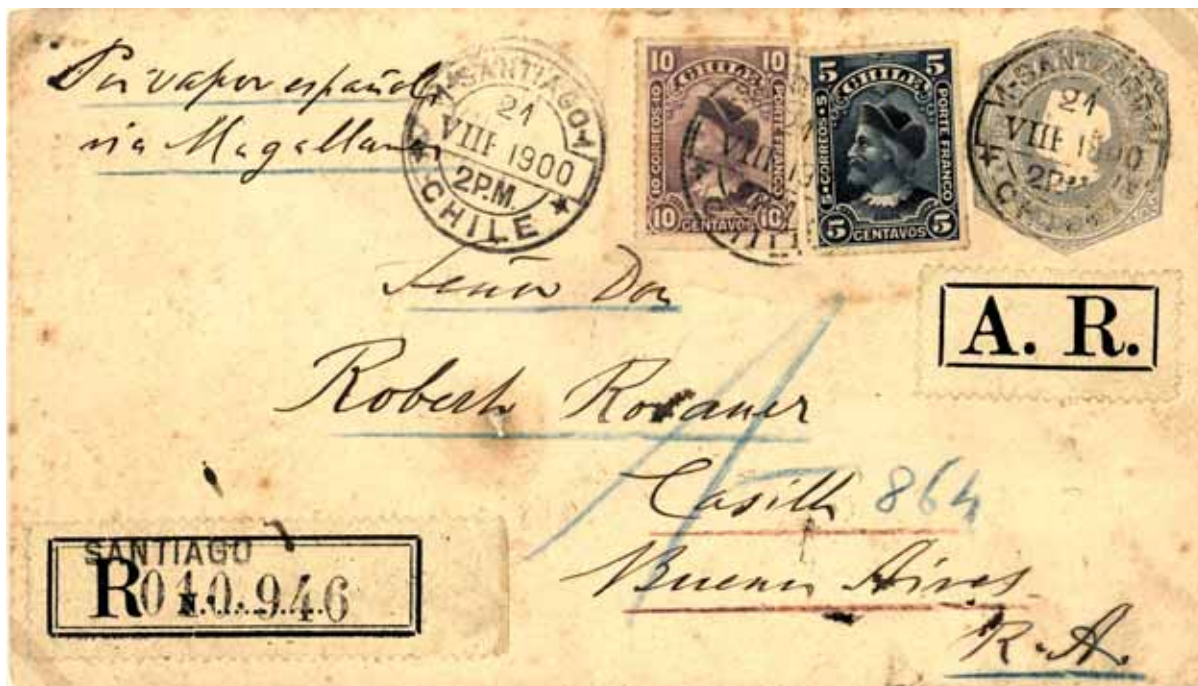 Por vapor español
via Magallanes
N-SANTIAGO-A
21
VIII 1900
2P.M.
CHILE
10 10
CHILE
10 CORREOS 10
PORTE FRANCO
10 CENTAVOS 10
5 5
CHILE
5 CORREOS 5
PORTE FRANCO
5 CENTAVOS 5
21
VIII 1900
2P.M.
Señor Don
A. R.
Robert
Casilla 864
Buenos Aires
R. A.
SANTIAGO
R 040.946